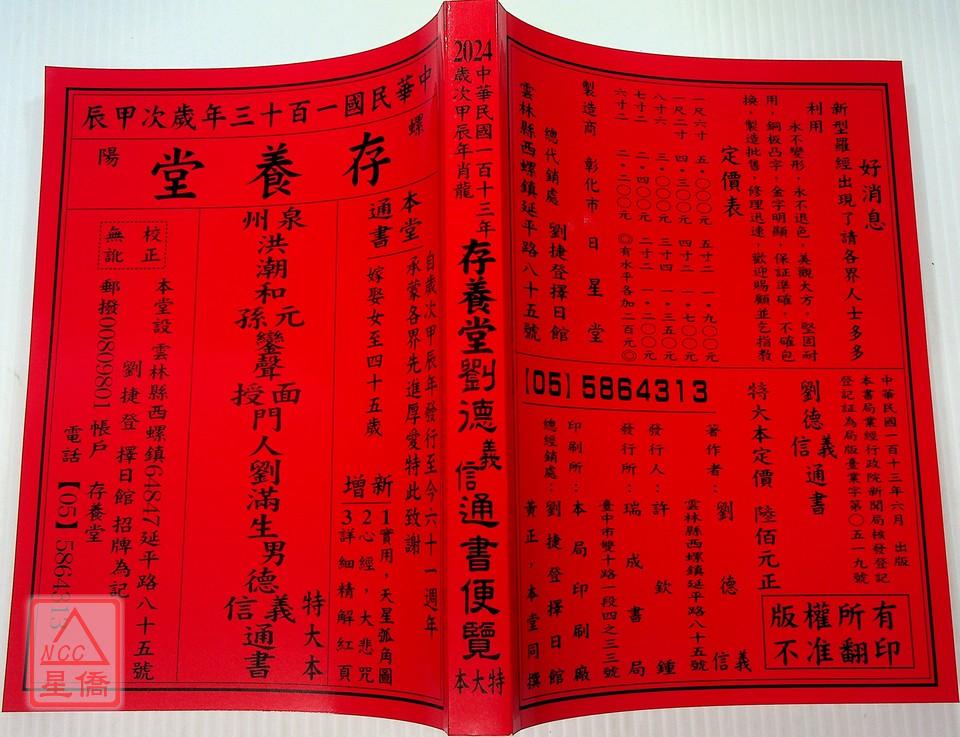 中華民國一百十三年歲次甲辰
螺陽
存養堂
本堂通書
自歲次甲辰年發行至今六十一週年
承蒙各界先進厚愛特此致謝
嫁娶女至四十五歲
新增
1實用，天星弧角圖
2心經，大悲咒
3詳細精解紅頁
泉州洪潮和元孫鑾聲面授門人劉滿生男德義信通書
特大本
校正無訛
本堂設 雲林縣西螺鎮64847延平路八十五號
劉捷登 擇日館 招牌為記
郵撥00809801帳戶 存養堂
電話【05】5864313
NCC
星僑
2024
中華民國一百十三年
歲次甲辰年肖龍
存養堂劉德義信通書便覽
特大本
好消息
新型羅經出現了請各界人士多多
利用
永不變形，永不退色，美觀大方，堅固耐
用，銅板凸字，金字明顯，保証準確，不確包
換，製造批售，修理迅速，歡迎賜顧並乞指教
定價表
一尺六寸 五．〇〇〇元 五寸二 一．九〇〇元
一尺二寸 四．三〇〇元 四寸二 一．七〇〇元
八寸六 三．〇〇〇元 三寸四 一．三〇〇元
七寸二 二．四〇〇元 二寸二 一．〇〇〇元
六寸二 二．二〇〇元 ◎有水平各加二百元◎
製造商 彰化市 日星堂
總代銷處 劉捷登擇日館
雲林縣西螺鎮延平路八十五號
【05】5864313
中華民國一百十三年六月 出版
本書局業經行政院新聞局核發登記
登記証為局版臺業字第〇五一九號
劉德義信通書
特大本定價 陸佰元正
著作者：劉德義信
雲林縣西螺鎮延平路八十五號
發行人：許欽鐘
發行所：瑞成書局
臺中市雙十路一段四之三三號
印刷所：本局印刷廠
總經銷處：劉捷登擇日館
黃正，本堂同撰
版權所有
不准翻印